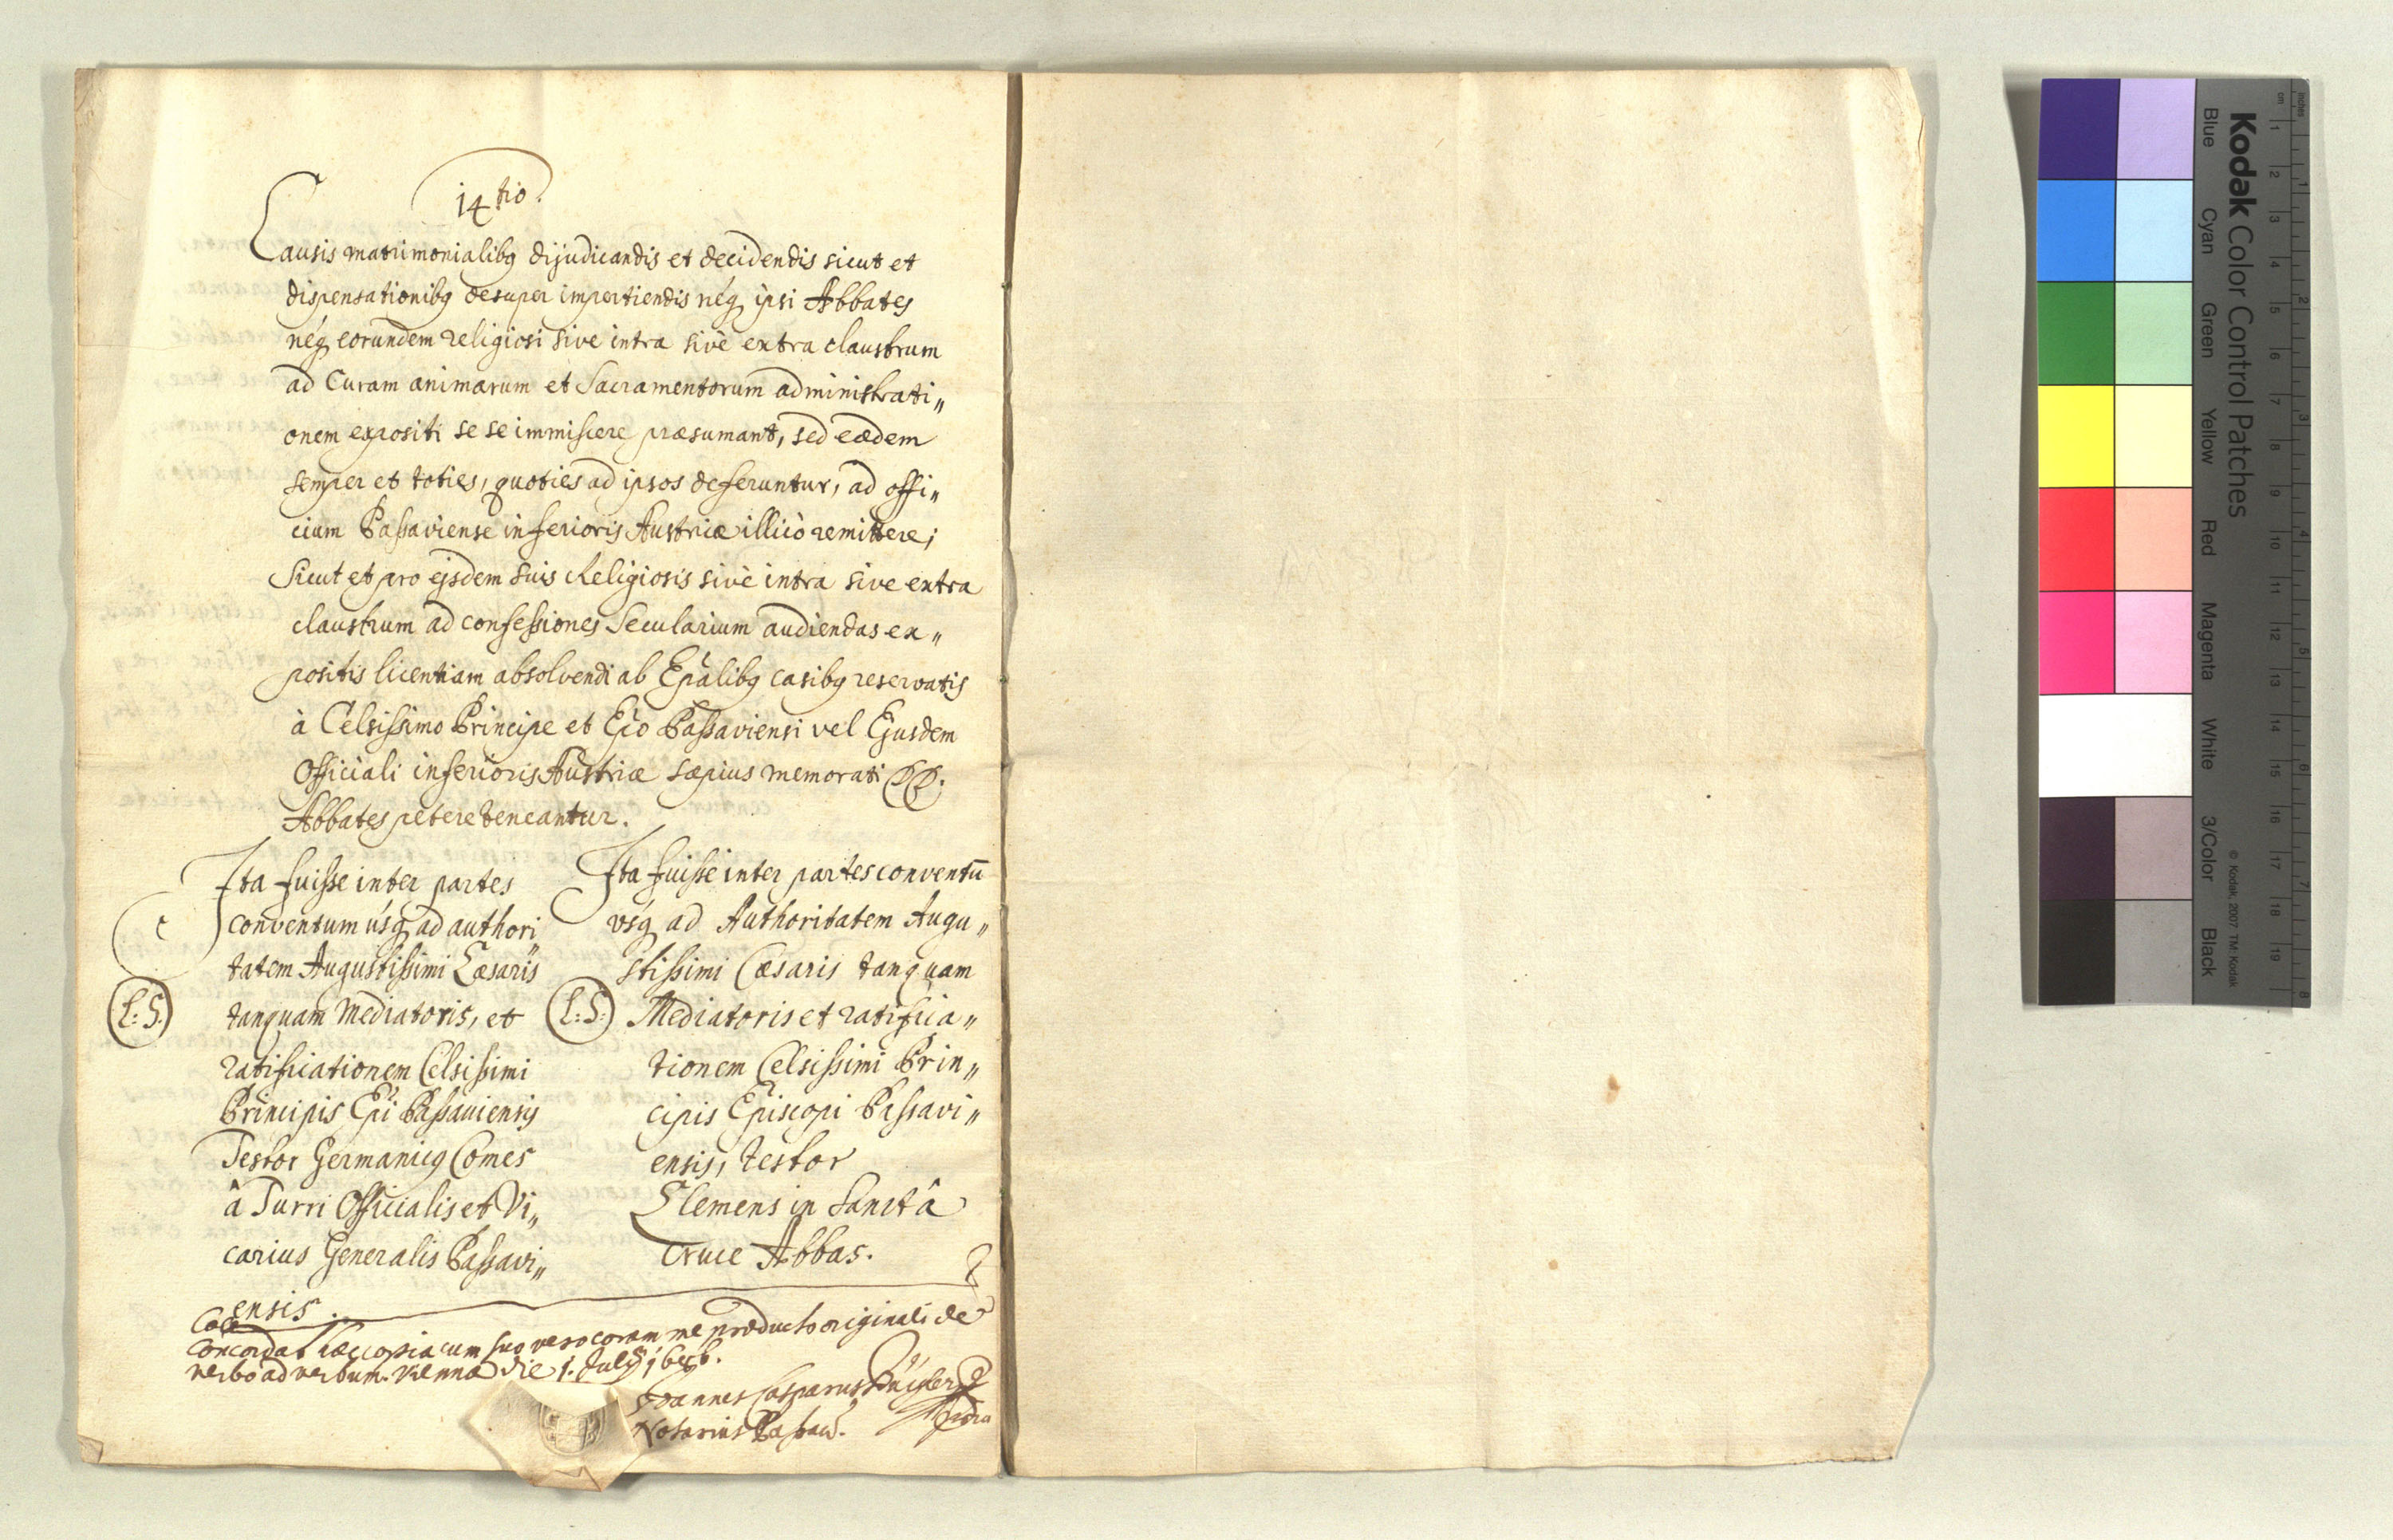 14tio.
Causis matrimonialibq dijudicandis et decidendis sicut et
dispensationibq desuper impertiendis néq ipsi Abbates
néq eorundem religiosi sive intra sivè extra claustrum
ad Curam animarum et Sacramentorum administrati„
onem expositi se se immiscere præsumant, sed eædem
semper et toties, quoties ad ipsos deferuntur, ad offi„
cium Passaviense inferioris Austriæ illicò remittere;
Sicut et pro ejsdem suis Religiosis sivè intra sive extra
claustrum ad confessiones Secularium audiendas ex„
positis licentiam absolvendi ab Epalibq casibq reservatis
à Celsissimo Principe et Epo Passaviensi vel Ejusdem
Officiali inferioris Austriæ sæpius memorati PP.
Abbates petere teneantur.
Ita fuisse inter partes
conventum úsq ad authori„
tatem Augustissimi Cæsaris
L: S. tanquam Mediatoris, et
ratificationem Celsissimi
Principis Epi Passaviensis
Testor Germanicq Comes
â Turri Officialis et Vi„
carius Generalis Passavi„
ensis.
Ita fuisse inter partes conventū
vsq ad Authoritatem Augu„
stissimi Cæsaris tanquam
L: S: Mediatoris et ratifica„
tionem Celsissimi Prin„
cipis Episcopi Passavi„
ensis, testor
Clemens in Sanctâ
Cruce Abbas.
Concordat hæc copia cum suo vero coram me producto originali de
verbo ad verbum. Viennæ die 1. July
Joannes Casparus
Notarius Passav.
Kodak Color Control Patches
Blue Cyan Green Yellow Red Magenta White 3/Color Black
© Kodak, 2007 TM: Kodak
inches 1 2 3 4 5 6 7 8
cm 1 2 3 4 5 6 7 8 9 10 11 12 13 14 15 16 17 18 19